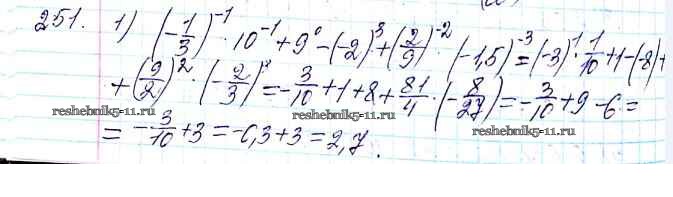 251. 1) (-1/3)^-1 · 10^-1 + 9^0 - (-2)^3 + (2/9)^-2 · (-1,5)^-3 = (-3)^1 · 1/10 + 1 - (-8) +
+ (9/2)^2 · (-2/3)^3 = -3/10 + 1 + 8 + 81/4 · (-8/27) = -3/10 + 9 - 6 =
reshebnik5-11.ru reshebnik5-11.ru reshebnik5-11.ru
= -3/10 + 3 = -0,3 + 3 = 2,7.